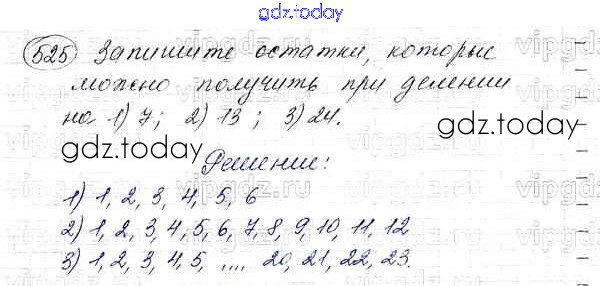 gdz.today
525 Запишите остатки, которые
можно получить при делении
на 1) 7; 2) 13; 3) 24.
gdz.today
gdz.today
Решение:
1) 1, 2, 3, 4, 5, 6
2) 1, 2, 3 4, 5, 6, 7, 8, 9, 10, 11, 12
3) 1, 2, 3, 4, 5, .... 20, 21, 22, 23.